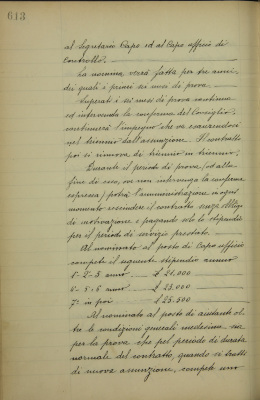 613
al Segretario Capo ed al Capo ufficio di
controllo.
La nomina verrà fatta per tre anni,
dei quali i primi sei mesi di prova.
Superati i sei mesi di prova continua
ed intervenendo la conferma del Consiglio,
continuerà l'impegno che va esaurendosi
nel triennio dall'assunzione. Il contratto
poi si rinnova di triennio in triennio.
Durante il periodo di prova, od alla
fine di esso, ove non intervenga la conferma
espressa, potrà l'amministrazione in ogni
momento rescindere il contratto senza obbligo
di motivazione e pagando solo lo stipendio
per il periodo di servizio prestato.
Al nominato al posto di Capo ufficio
compete il seguente stipendio annuo
1-2-3 anno £ 21.000
4-5-6 anno £ 23.000
7° in poi £ 25.500
Al nominato al posto di aiutante ol
tre le condizioni generali medesime sia
per la prova che pel periodo di durata
normale del contratto, quando si tratti
di nuova assunzione, compete uno